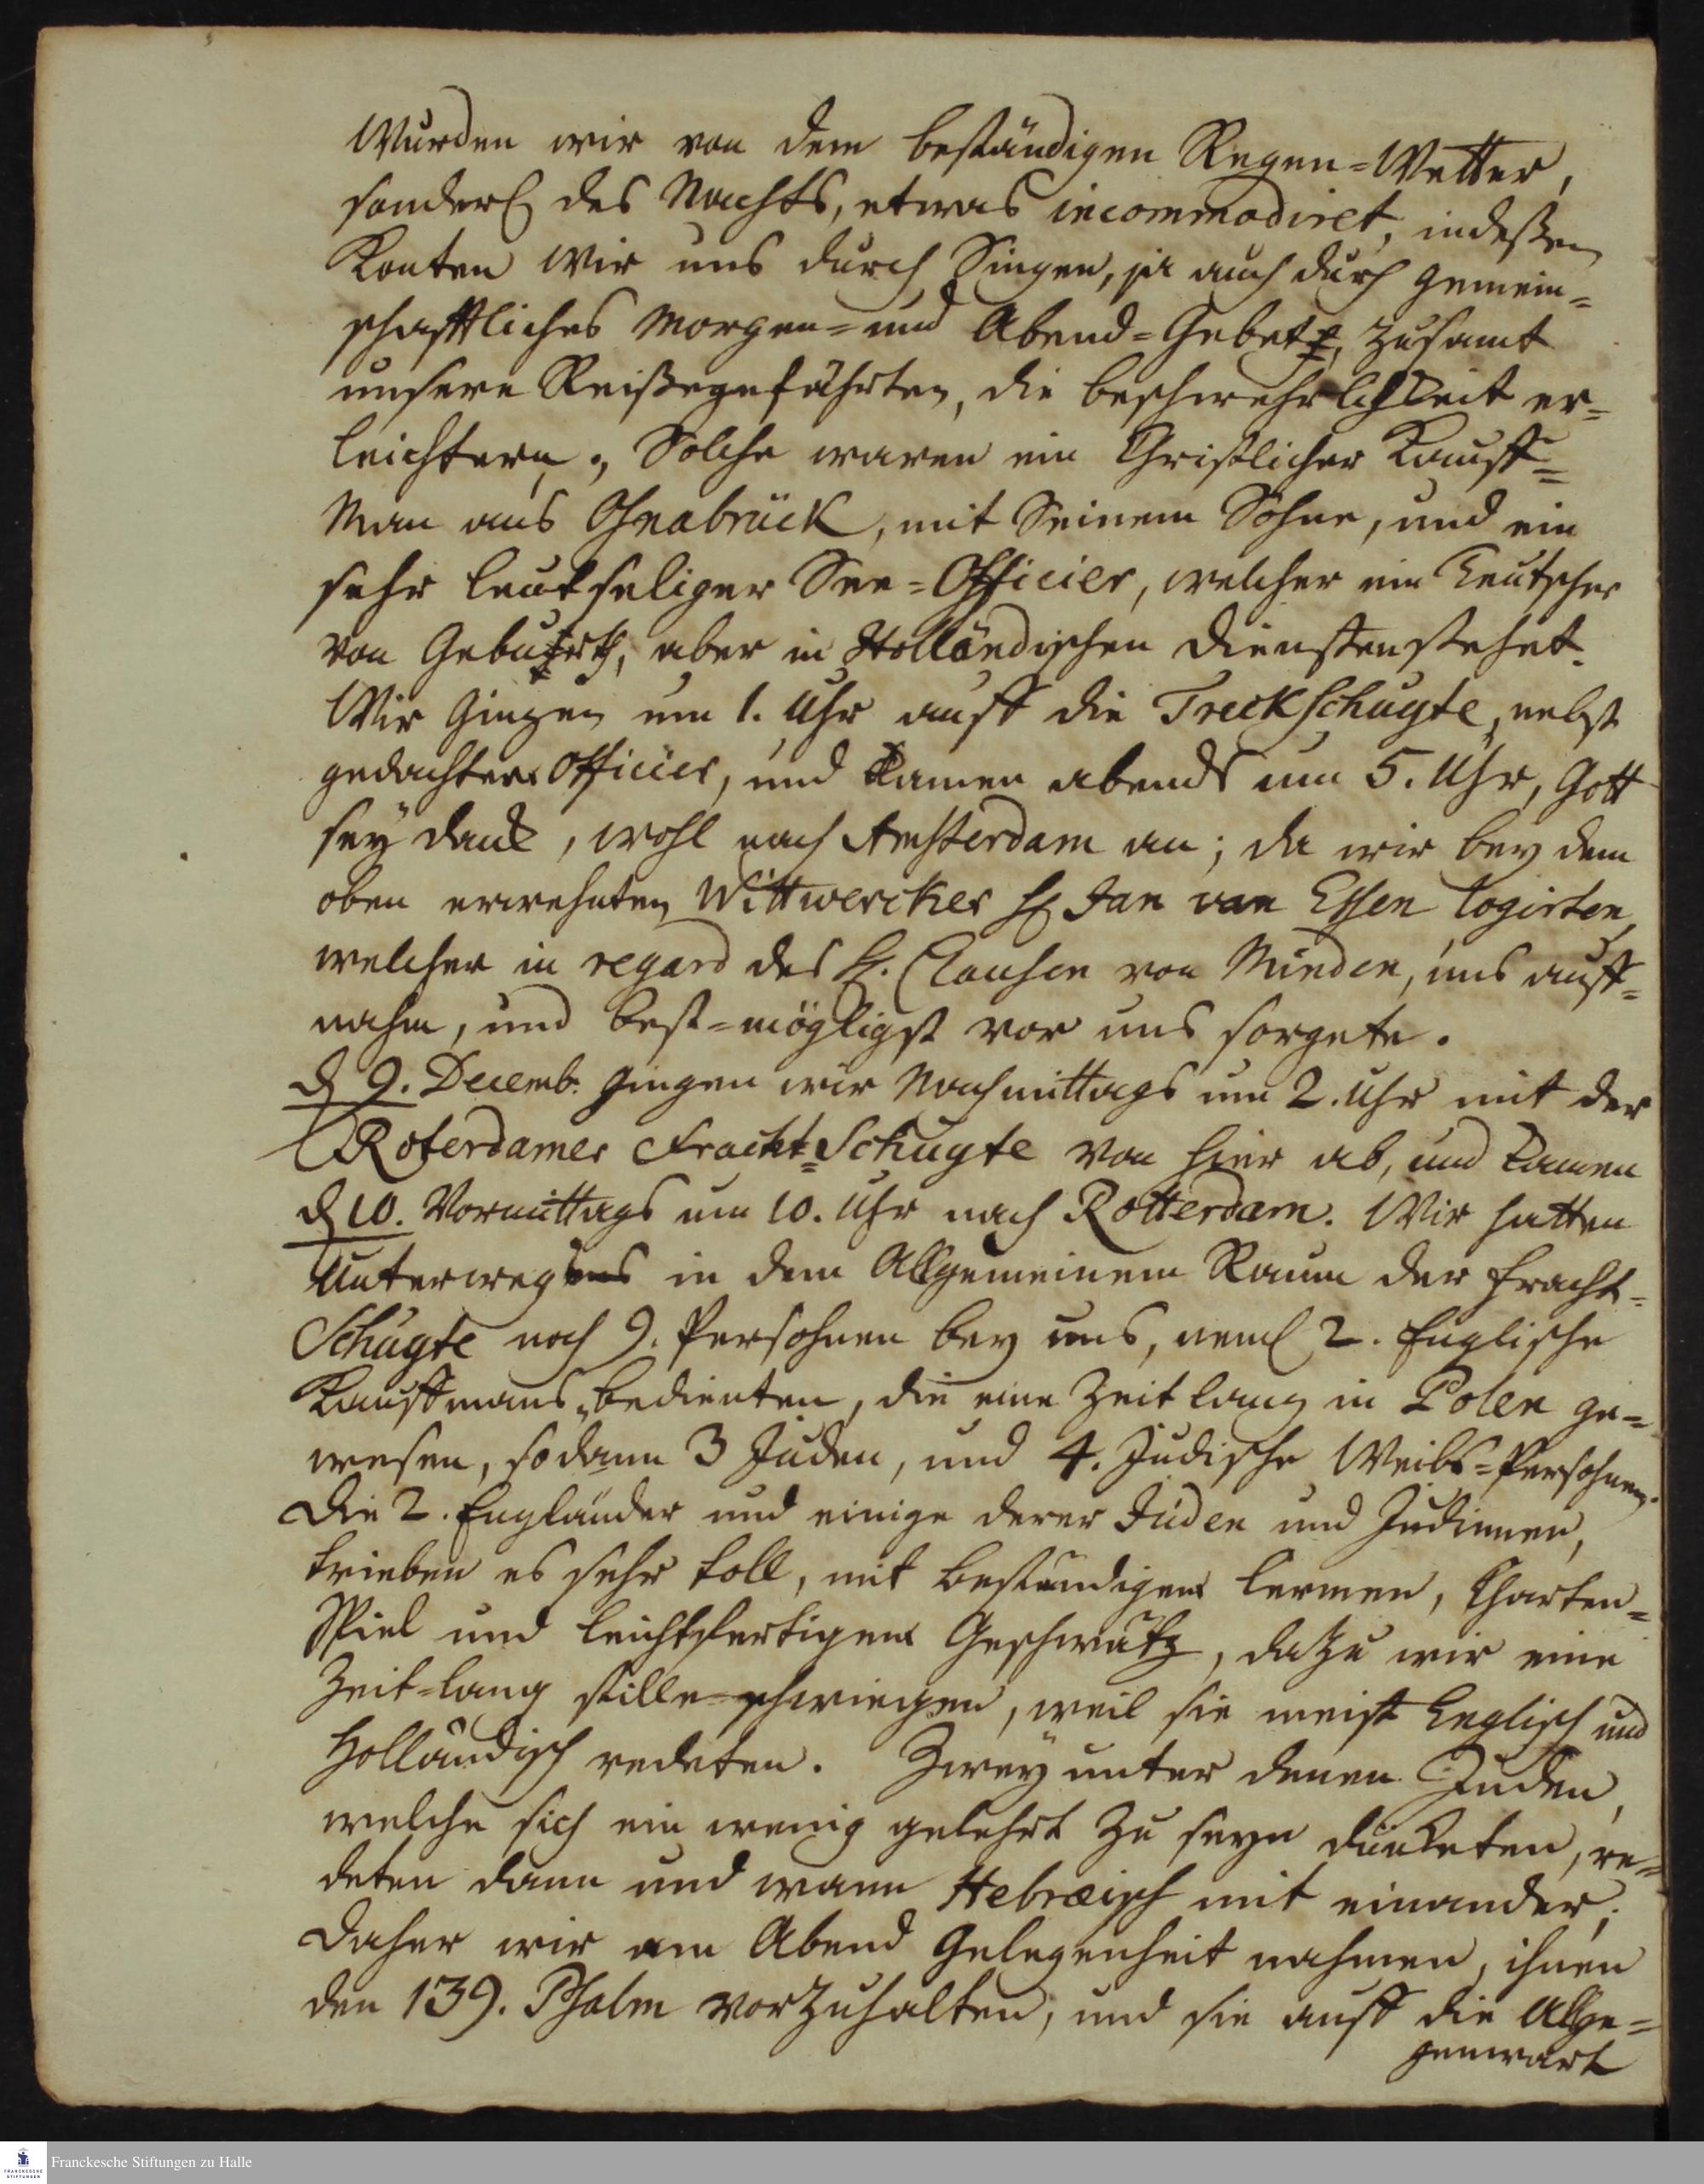 Wurden wir von dem beständigen Regen=Wetter,
sonderl. des Nachts, etwas incommodiret, indeßen
Konten wir uns durch Singen, ja auch durch gemein=
schafftliches Morgen= und Abend=Gebet, zusamt
unsere Reißegefährten, die beschwehrlichkeit er=
leichtern. Solche waren ein Christlicher Kauff=
Man aus Oßnabrück, mit Seinem Sohne, und ein
sehr leutseliger See=Officier, welcher ein Teutscher
von Geburth, aber in Holländischen Diensten stehet.
Wir Gingen um 1. Uhr auff die Treckschuyte, nebst
gedachter Officier, und kamen abends um 5. Uhr, Gott
sey dank, wohl nach Amsterdam an; da wir bey dem
oben erwehnten Wittwercker H. Jan van Essen logirten,
welcher in regard des H. Clausen von Minden, uns auff=
nahm, und best=mögligst vor uns sorgete.
d. 9. Decemb. gingen wir Nachmittags um 2. Uhr mit der
Roterdamer Fracht=Schuyte von hier ab, und kamen
d. 10. Vormittags um 10. Uhr nach Rotterdam. Wir hatten
Unterwegens in dem Allgemeinem Raum der Fracht=
Schuyte noch 9. Persohnen bey uns, neml. 2. Englische
Kauffmans=bedienten, die eine Zeit lang in Polen ge=
wesen, sodann 3 Juden, und 4. Judische Weibs=Persohnen.
Die 2. Engländer und einige derer Juden und Judinnen,
trieben es sehr toll, mit beständigem lermen, Charten=
Spiel und leichtfertigem Geschwätz, dazu wir eine
Zeit=lang stille=schwiegen, weil sie meist Englisch und
Holländisch redeten. Zwey unter denen Juden,
welche sich ein wenig gelehrt zu seyn dünketen, re=
deten dann und wann Hebræisch mit einander;
Daher wir am Abend Gelegenheit nahmen, ihnen
den 139. Psalm vorzuhalten, und sie auff die Allge=
genwart
Franckesche Stiftungen zu Halle
FRANCKESCHE
STIFTUNGEN